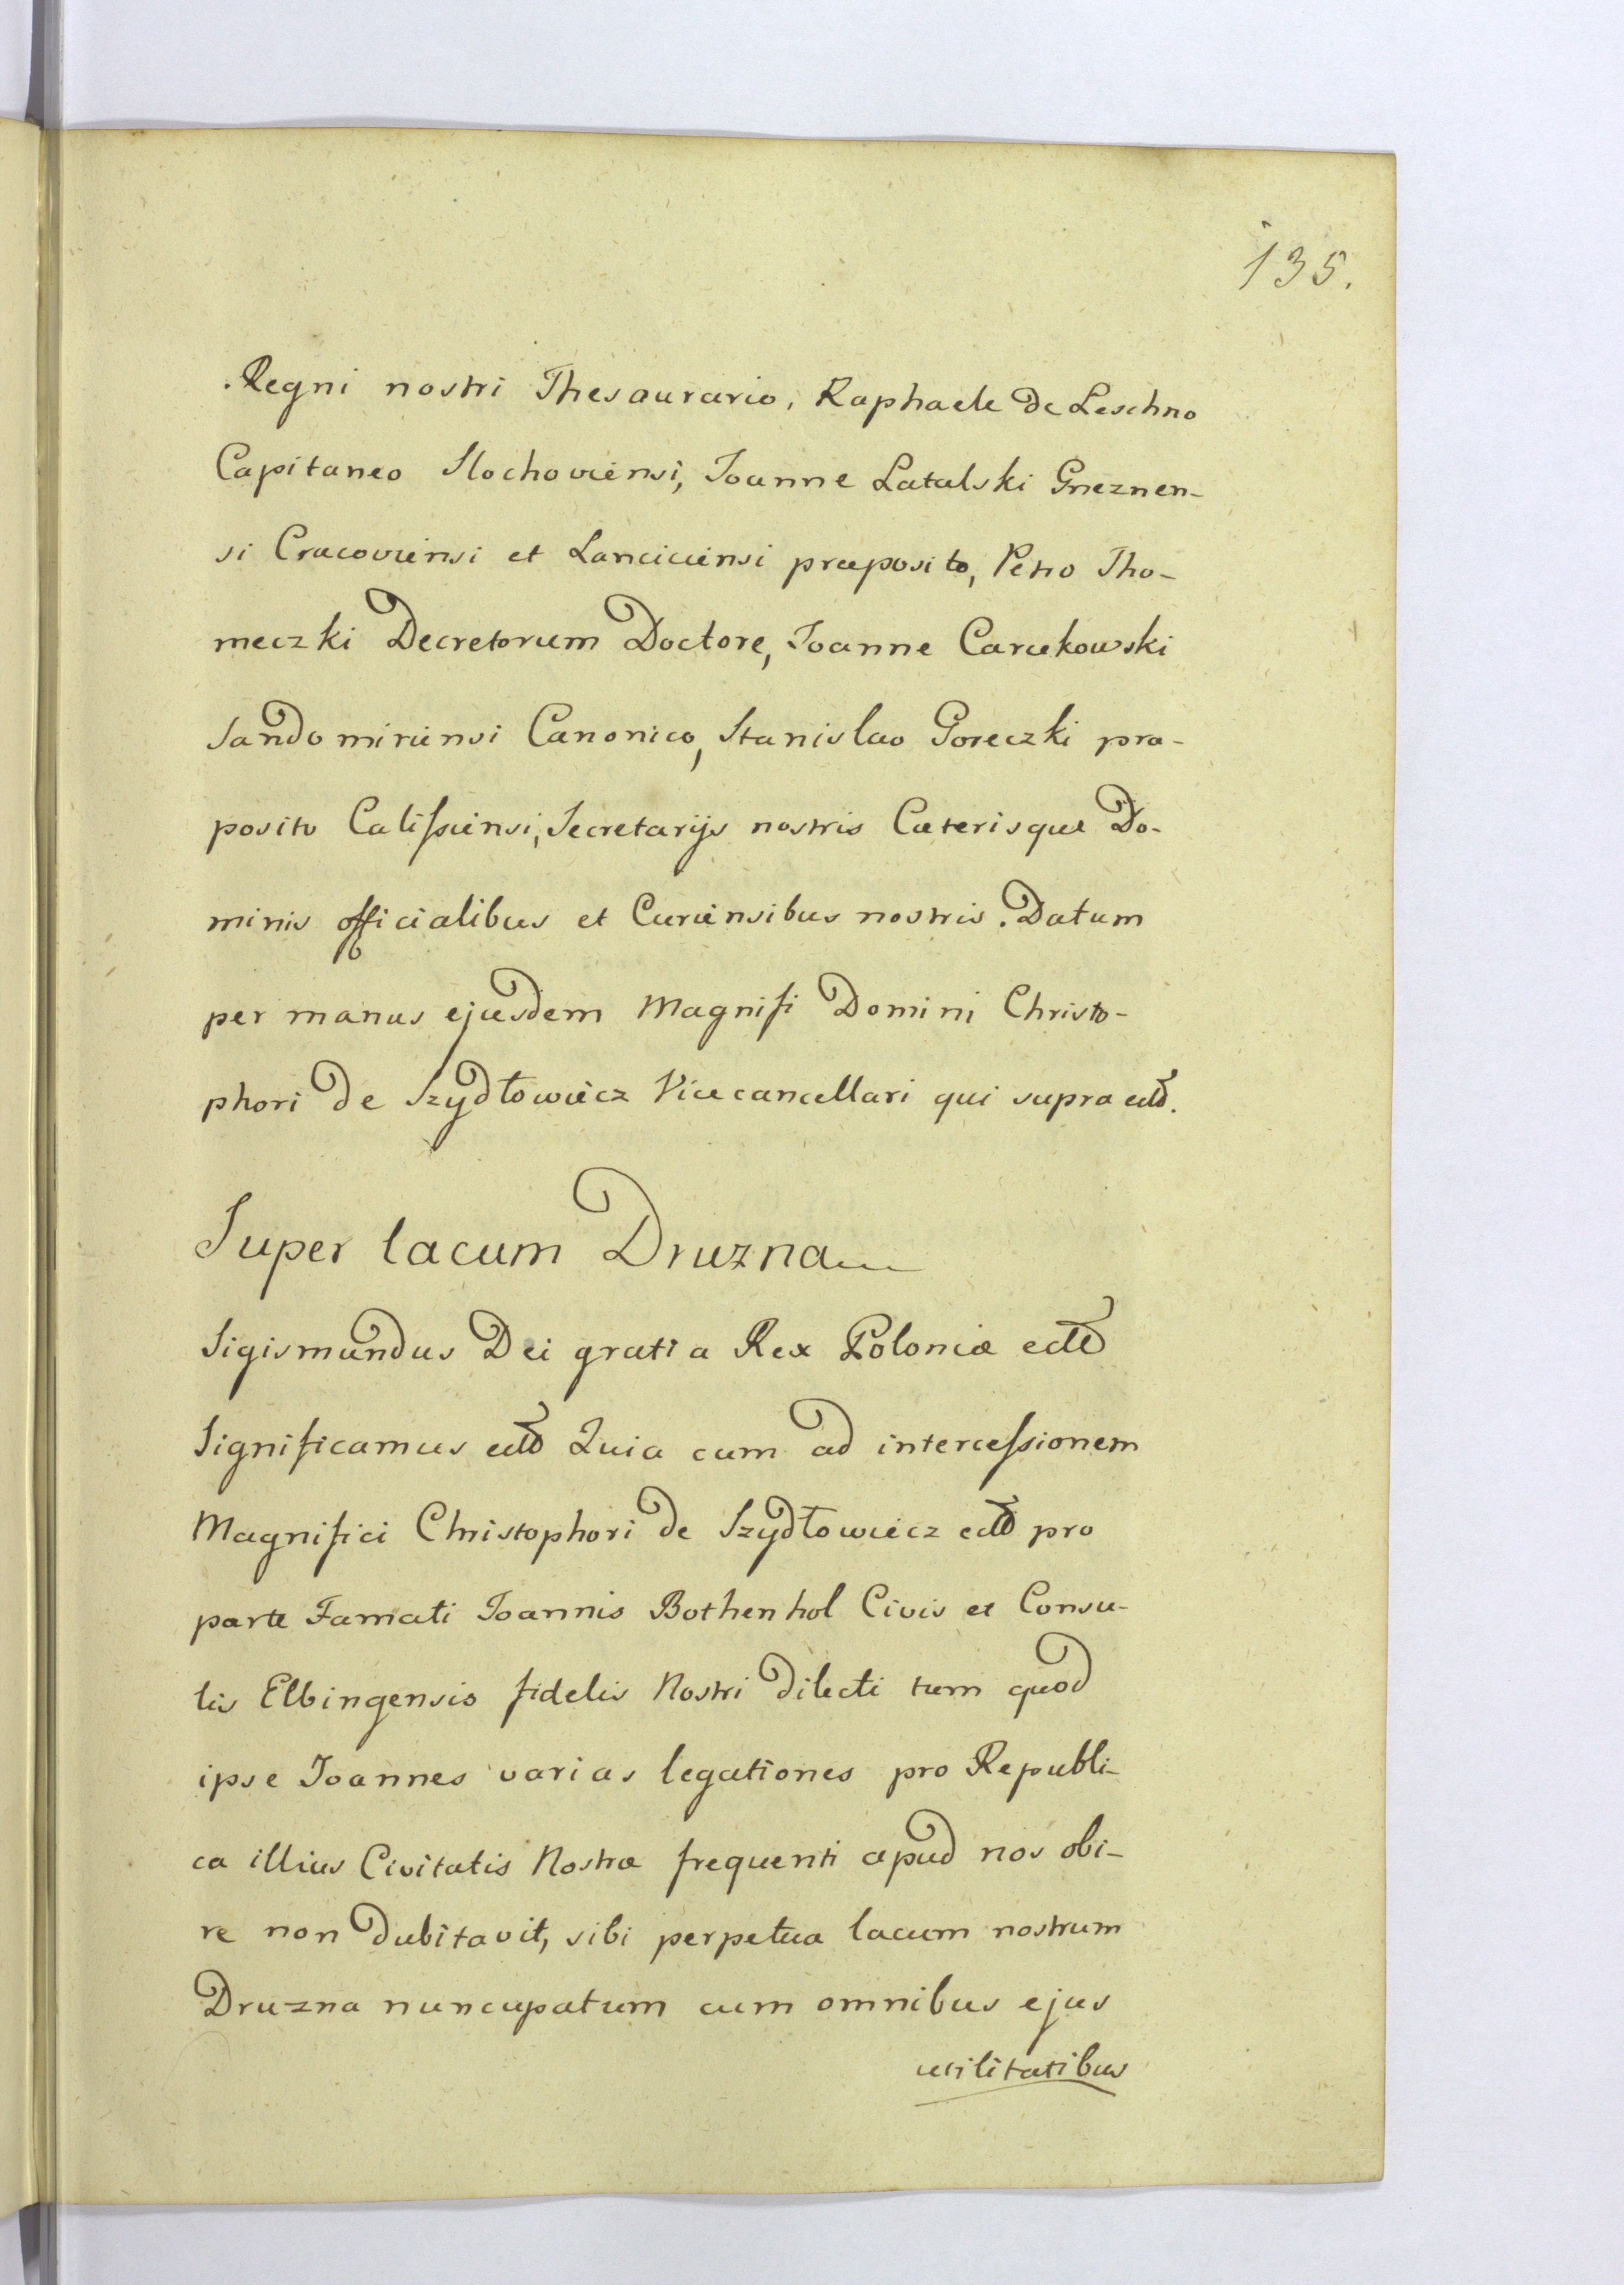 135.
Regni nostri Thesaurario, Raphaele de Leschno
Capitaneo Slochoviensi, Joanne Latalski Gneznen-
si Cracoviensi et Lanciciensi præposito, Petro Tho-
meczki Decretorum Doctore, Joanne Carukowski
Sandomiriensi Canonico, Stanislao Goreczki præ-
posito Calissiensi, Secretarijs nostris Cæterisque Do-
minis officialibus et Curiensibus nostris. Datum
per manus ejusdem Magnifi Domini Christo-
phori de Szydłowiecz Vicecancellari qui supra
Super lacum Druzna
Sigismundus Dei gratia Rex Poloniæ
Significamus Quia cum ad intercessionem
Magnifici Christophori de Szydłowiecz pro
parte Famati Joannis Bothenhol Civis et Consu-
lis Elbingensis fidelis Nostri dilecti tum quod
ipse Joannes varias legationes pro Republi-
ca illius Civitatis Nostræ frequenti apud nos obi-
re non dubitavit, sibi perpetua lacum nostrum
Druzna nuncupatum cum omnibus ejus
utilitatibus